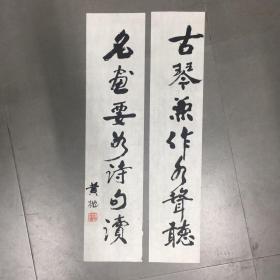 古琴兼作水聲聽
名畫要如詩句讀
黄